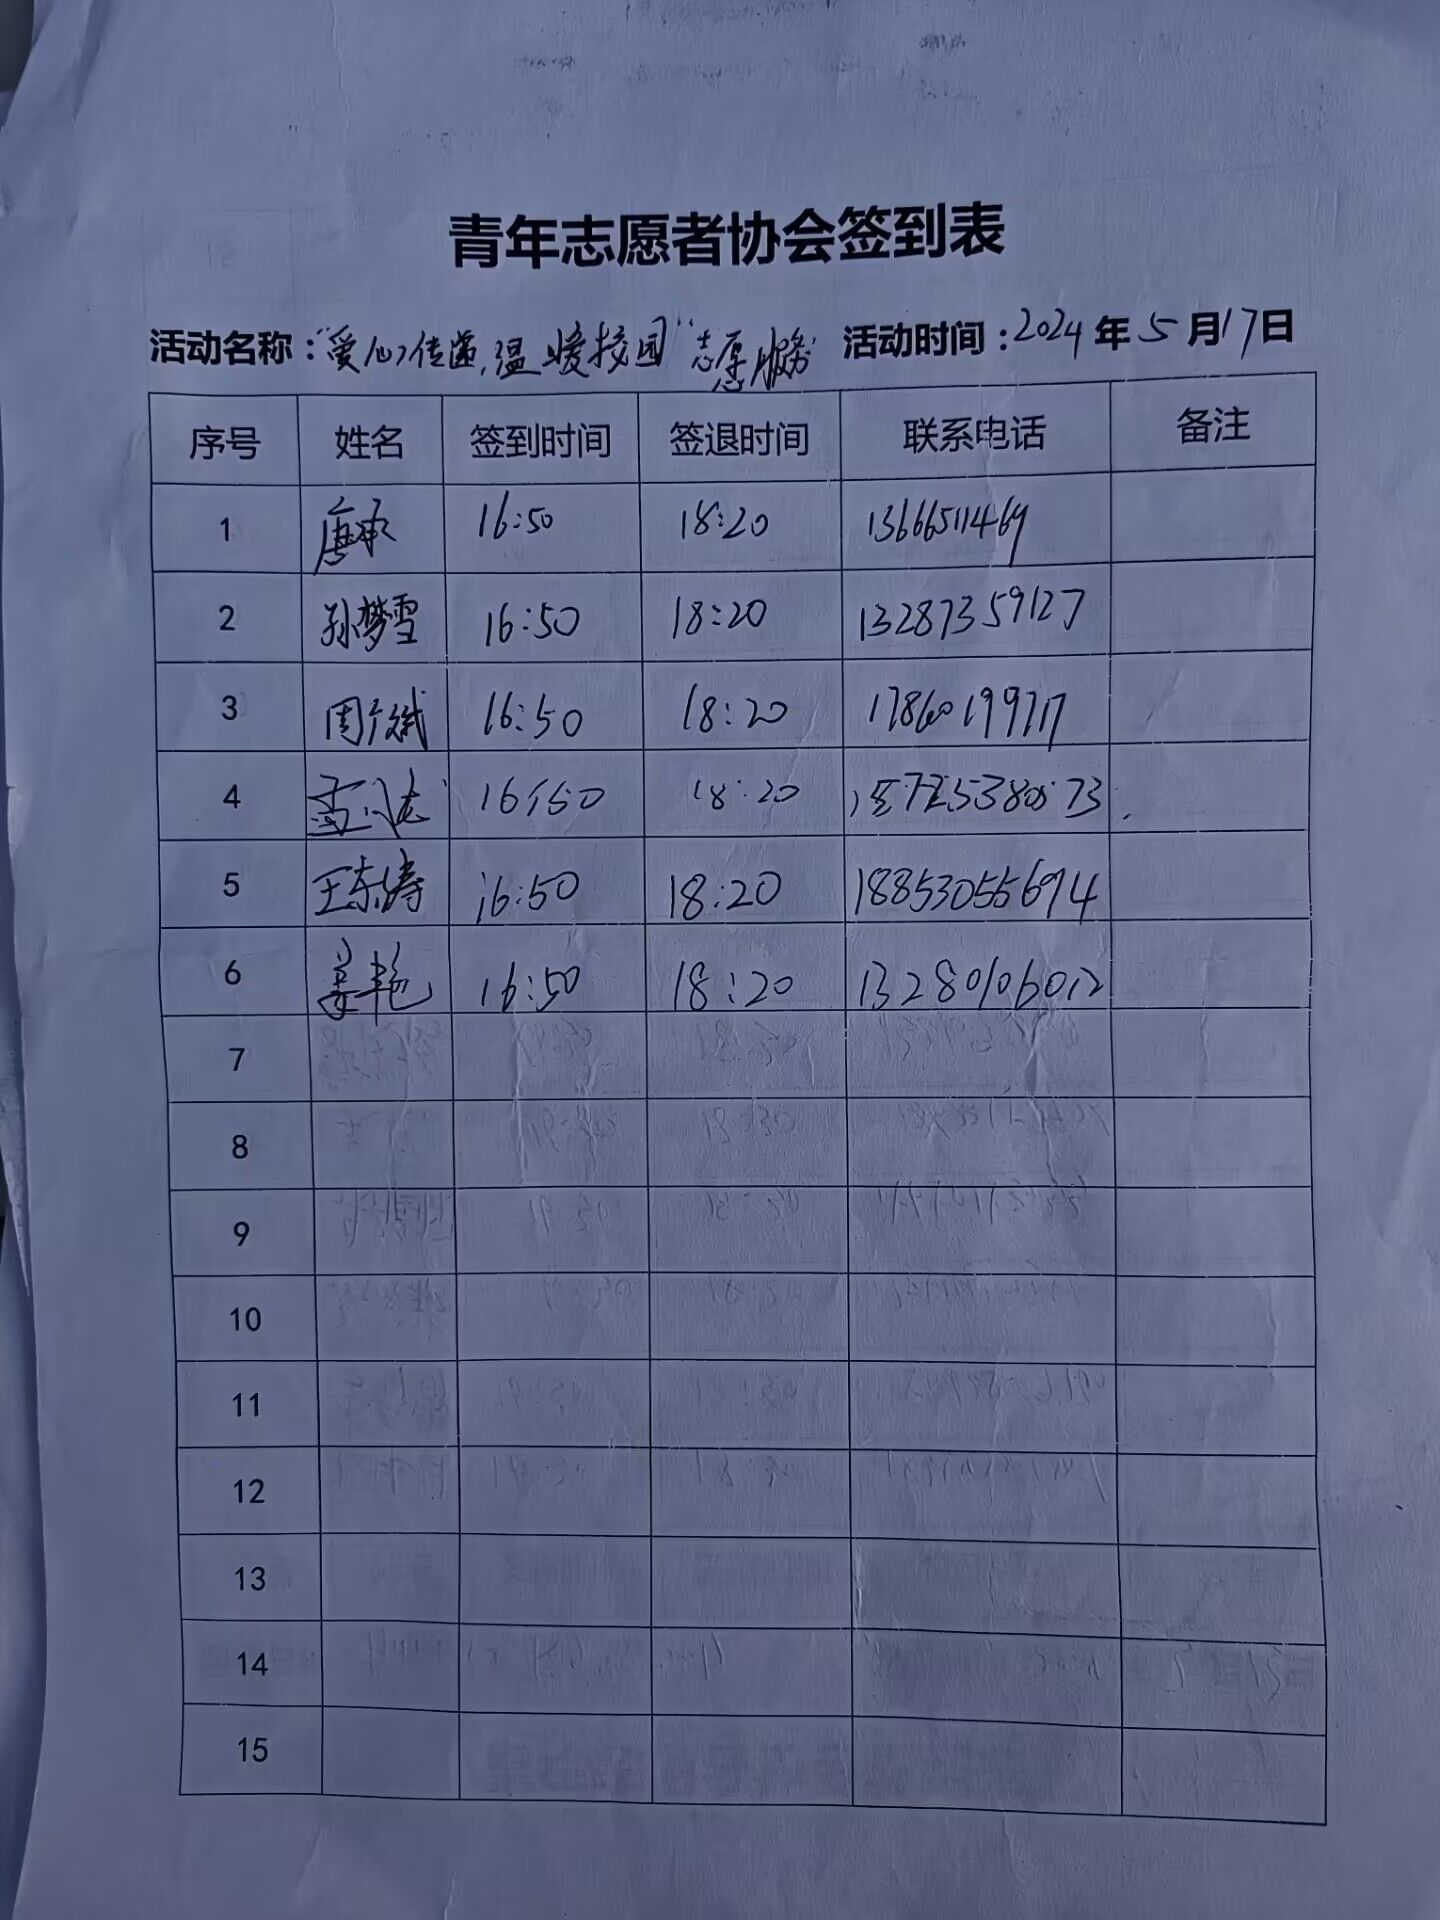 青年志愿者协会签到表
活动名称："爱心传递,温暖校园"志愿服务 活动时间：2024年5月17日
序号 姓名 签到时间 签退时间 联系电话 备注
1 唐承 16:50 18:20 13666511469
2 孙梦雪 16:50 18:20 13287359127
3 周广斌 16:50 18:20 17860199717
4 16:50 18:20
5 王东涛 16:50 18:20 18853055694
6 姜艳 16:50 18:20 13280106012
7
8
9
10
11
12
13
14
15